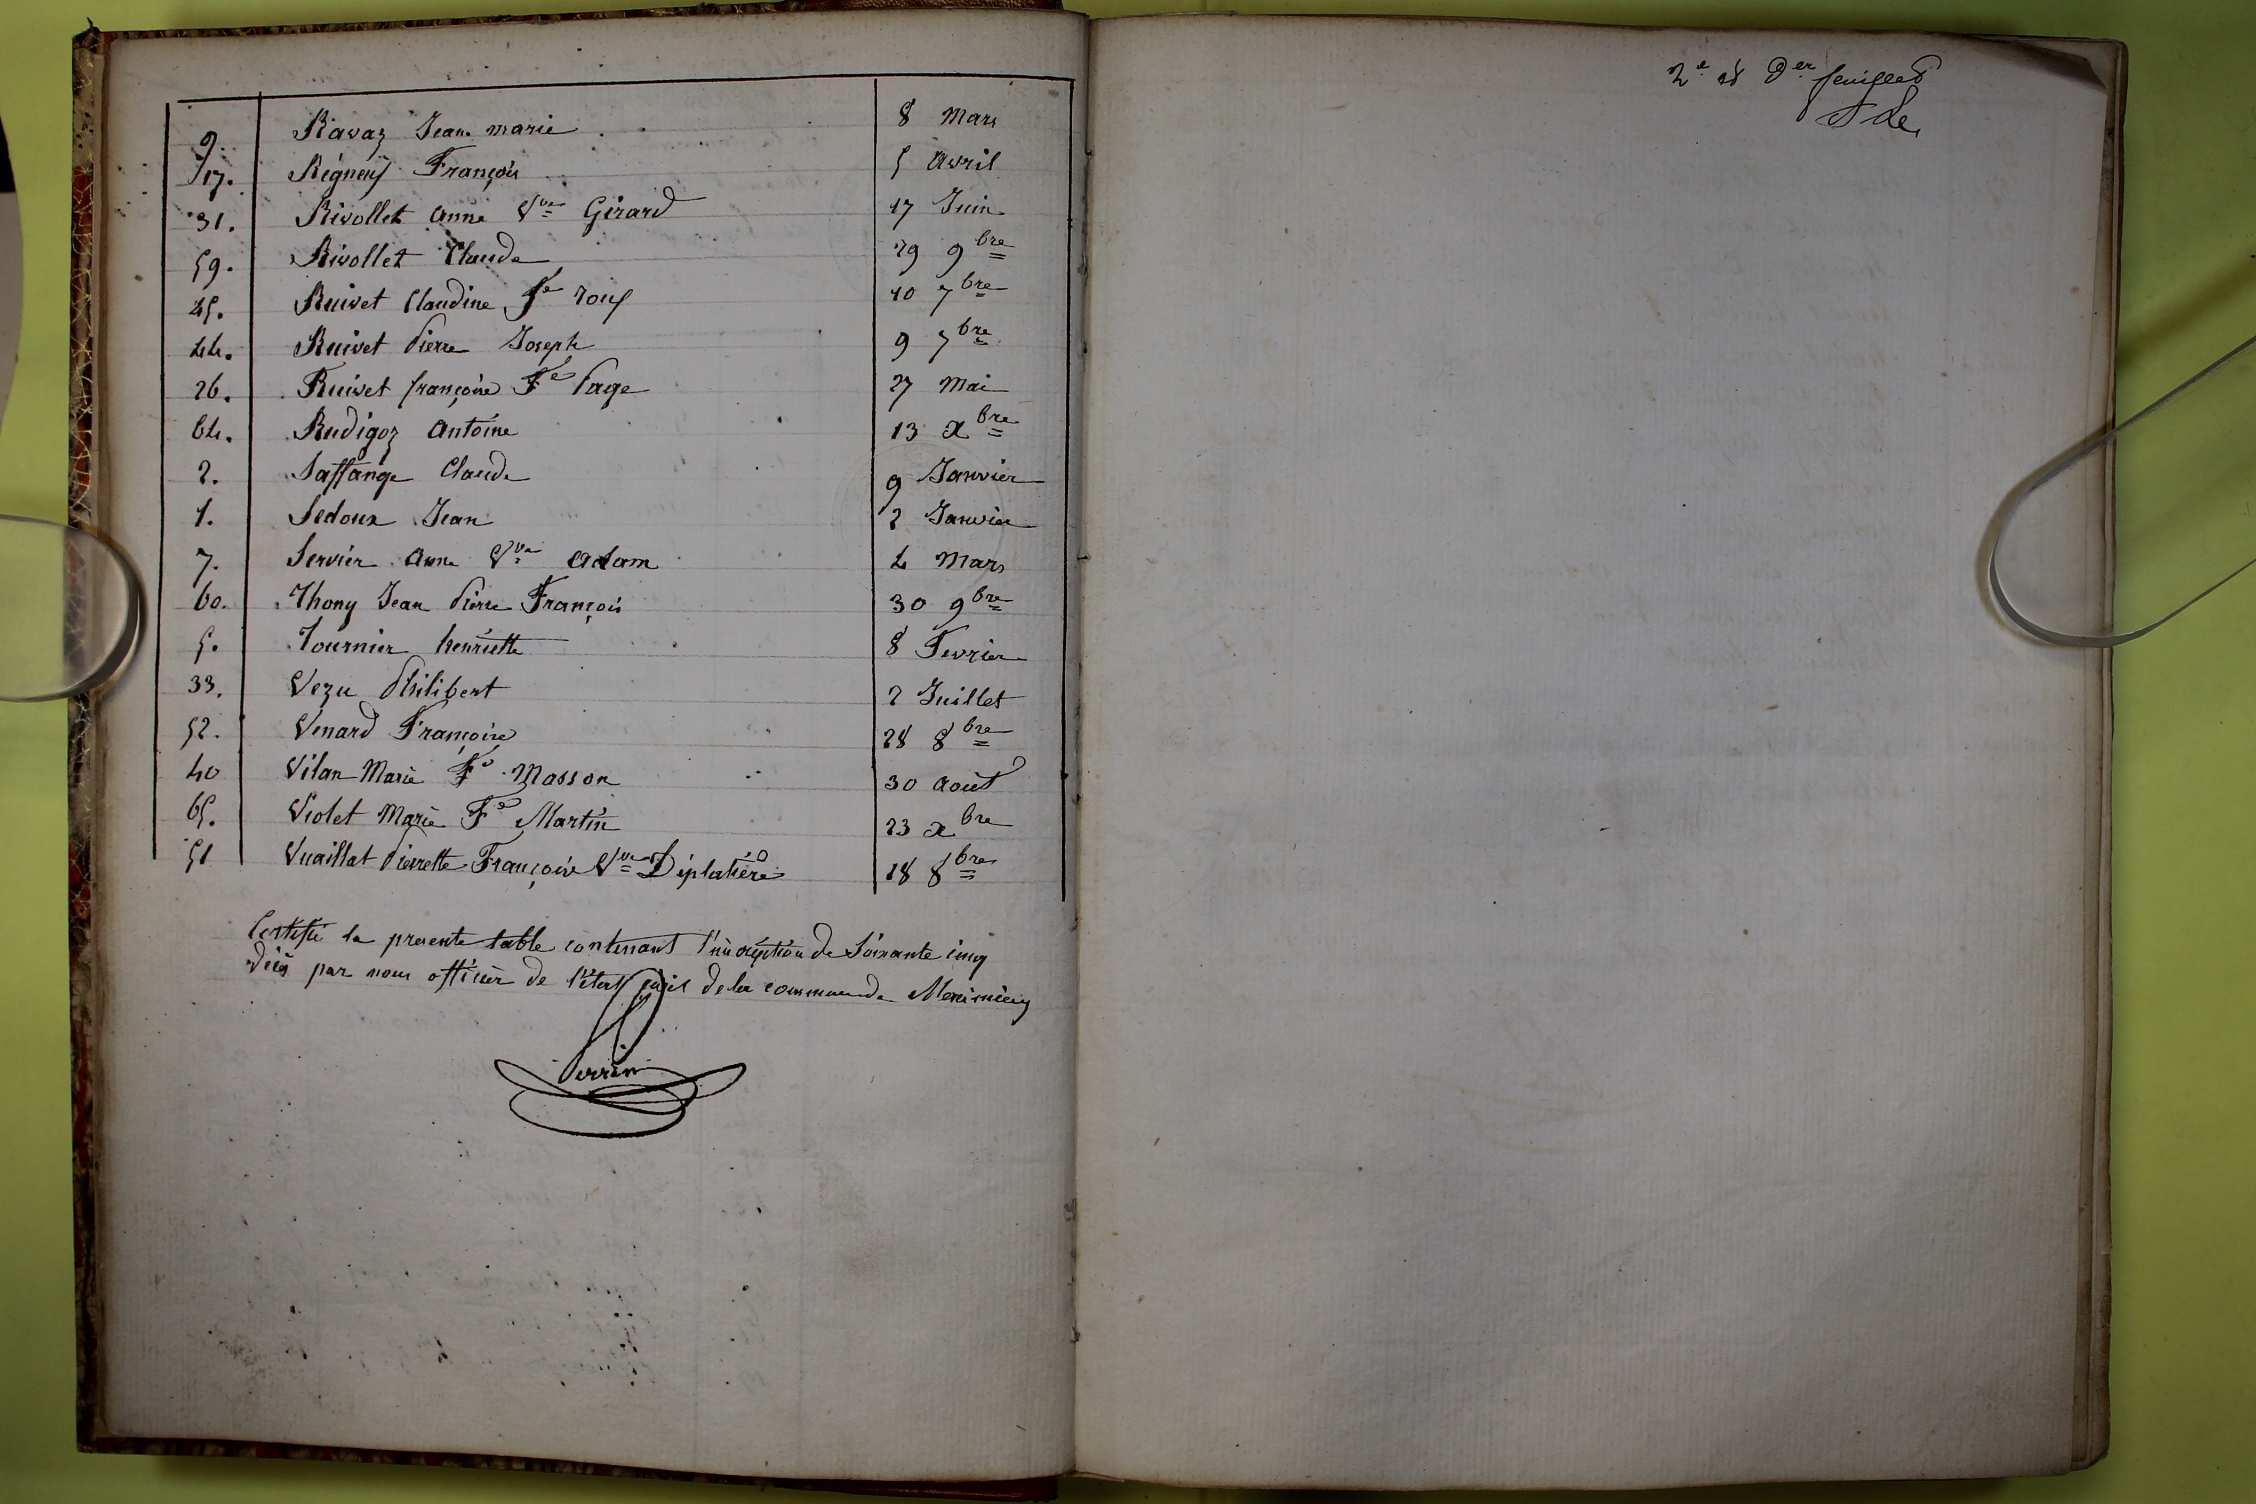 9. Ravaz Jean marie 8 Mars
17. Régneux François 5 avril
31. Rivollet anne Vve Girard 17 Juin
59. Rivollet Claude 29 9bre
45. Ruivet Claudine Fe roux 10 7bre
44. Ruivet Pierre Joseph 9 7bre
26. Ruivet françoise Fe Page 27 Mai
64. Rudigoz antoine 13 xbre
2. Saffange Claude 9 Janvier
1. Sedoux Jean 2 Janvier
7. Servier anne Vve adam 4 Mars
60. Thony Jean Pierre François 30 9bre
5. Tournier henriette 8 Fevrier
33. Vezu Philibert 2 Juillet
52. Venard Françoise 28 8bre
40 Vilan Marie Fe Masson 30 août
65. Violet Marie Fe Martin 23 xbre
51 Vuaillat Pierrette Françoise Vve Diplatière 18 8bre
Certifié la presente table contenant l'inscription de Soixante cinq
décès par nous officier de l'état civil de la commune de Meximieux
Perrin
2e et Der feuillet